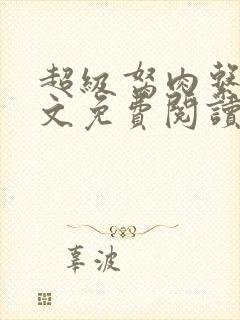 超級骂肉
文免費閱讀
辜波